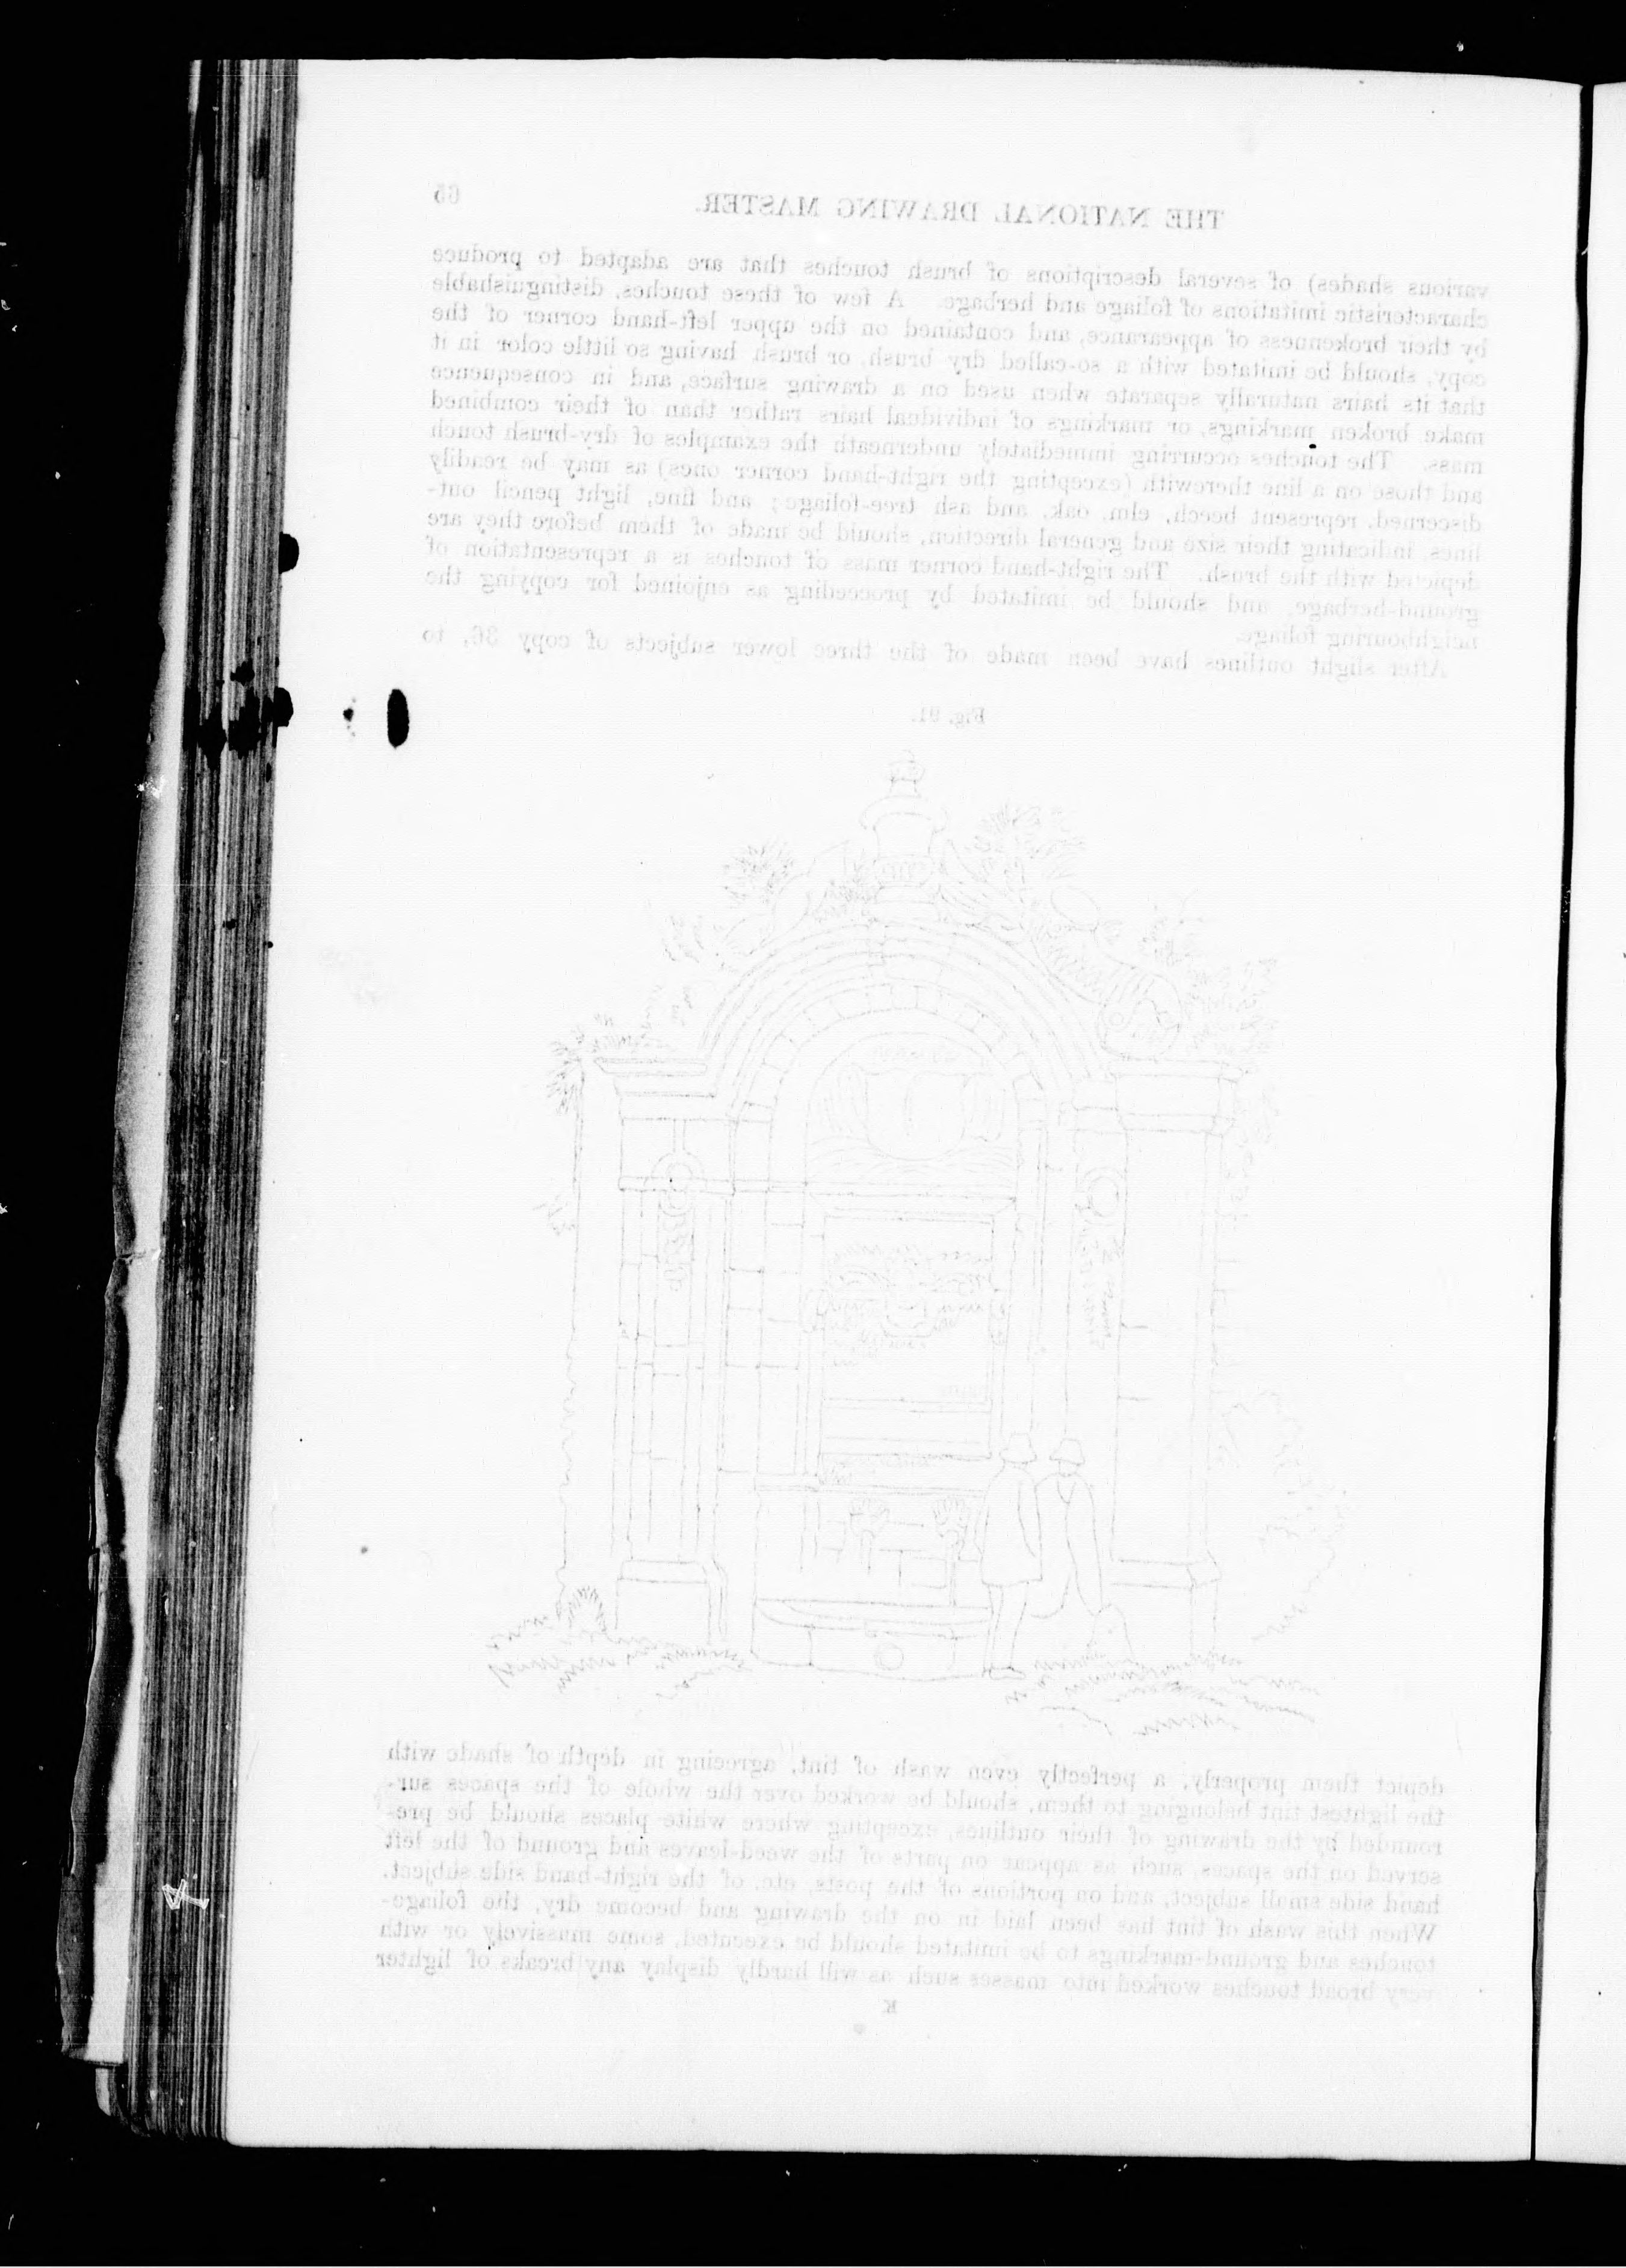 THE NATIONAL DRAWING MASTER. 65
various shades) of several descriptions of brush touches that are adapted to produce
characteristic imitations of foliage and herbage. A few of these touches, distinguishable
by their brokenness of appearance, and contained on the upper left-hand corner of the
copy, should be imitated with a so-called dry brush, or brush having so little color in it
that its hairs naturally separate when used on a drawing surface, and in consequence
make broken markings, or markings of individual hairs rather than of their combined
mass. The touches occurring immediately underneath the examples of dry-brush touch
and those on a line therewith (excepting the right-hand corner ones) as may be readily
discerned, represent beech, elm, oak, and ash tree-foliage; and fine, light pencil out-
lines, indicating their size and general direction, should be made of them before they are
depicted with the brush. The right-hand corner mass of touches is a representation of
ground-herbage, and should be imitated by proceeding as enjoined for copying the
neighbouring foliage.
After slight outlines have been made of the three lower subjects of copy 36, to
Fig. 91.
depict them properly, a perfectly even wash of tint, agreeing in depth of shade with
the lightest tint belonging to them, should be worked over the whole of the spaces sur-
rounded by the drawing of their outlines, excepting where white places should be pre-
served on the spaces, such as appear on parts of the weed-leaves and ground of the left
hand side small subject, and on portions of the posts, etc. of the right-hand side subject.
When this wash of tint has been laid in on the drawing and become dry, the foliage-
touches and ground-markings to be imitated should be executed, some massively or with
very broad touches worked into masses such as will hardly display any breaks of lighter
K